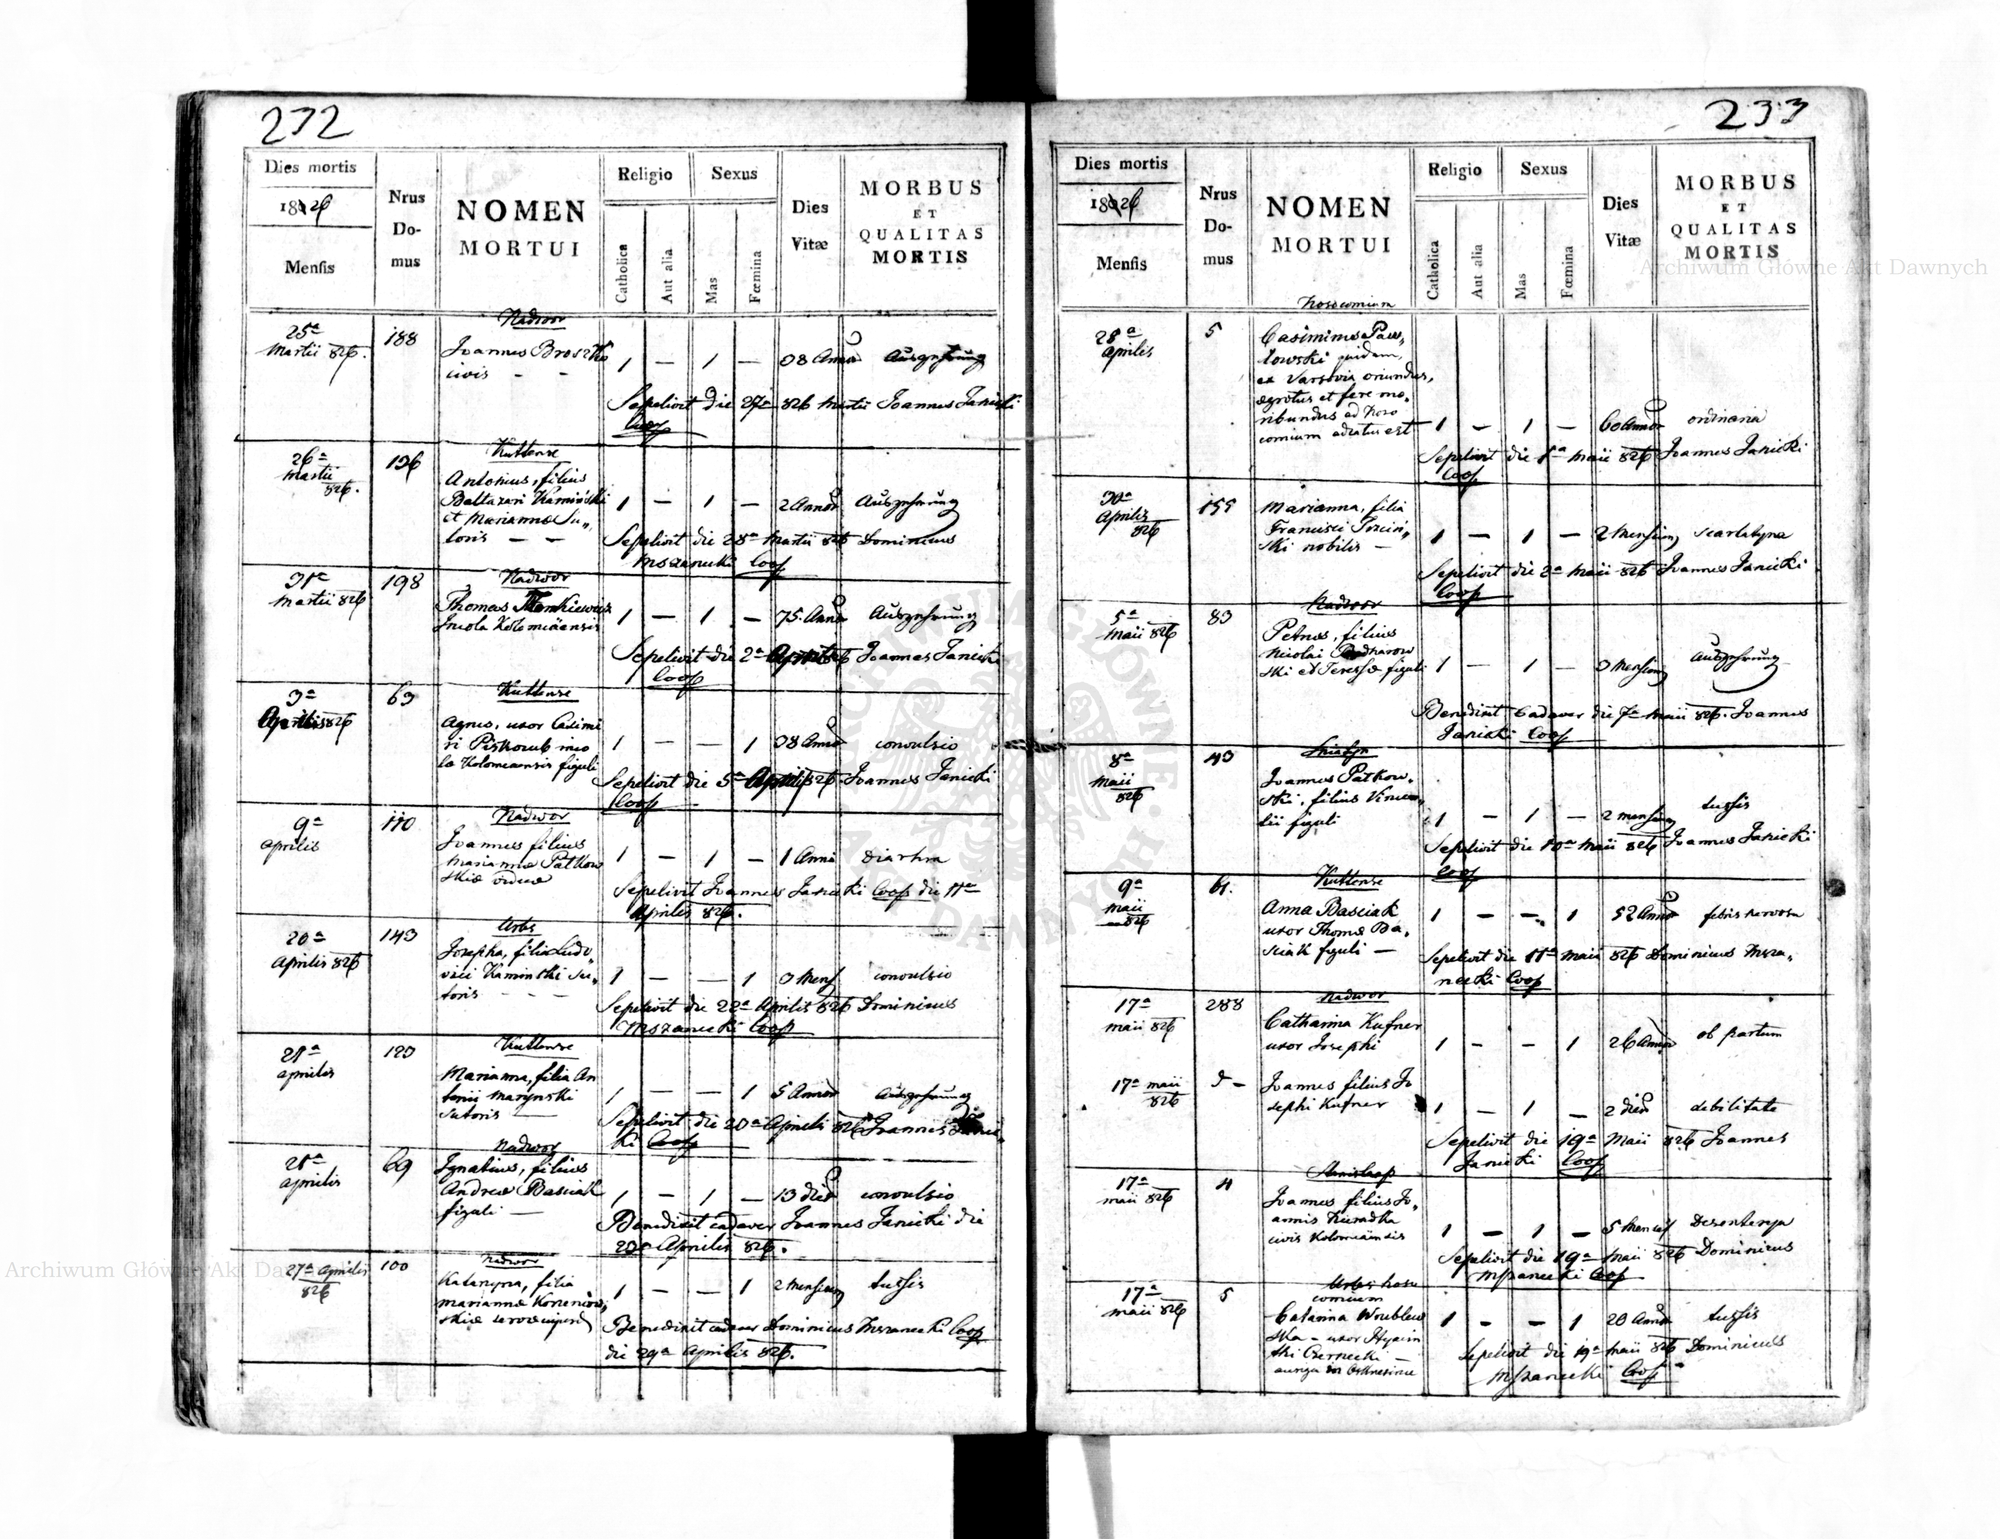 232
Dies mortis
1826
Mensis
Nrus
Do-
mus
NOMEN
MORTUI
Religio
Sexus
Catholica
Aut alia
Mas
Fœmina
Dies
Vitæ
MORBUS
ET
QUALITAS
MORTIS
Nadwor
25ª
Martii 826.
188
Joannes
civis - -
1 - 1 -
38 Annor
Auszehrung
Sepelivit die 27ª 826 Martii Joannes Janicki
Coop
Kuttense
26ª
Martii
826.
136
Antonius, filius
Baltazari Kamiński
et Mariannæ Su„
toris - -
1 - 1 -
2 Annor
Auszehrung
Sepelivit die 28ª Martii 826 Dominicus
Mszanecki Coop
Nadwor
31ª
Martii 826
198
Thomas
Incola Kolomeænsis
1 - 1 -
75. Annor
Auszehrung
Sepelivit die 2ª Aprilis 826 Joannes Janicki
Coop
Kuttense
3ª
Aprilis 826
63
Agnes, uxor Casimi
ri inco
læ Kolomeaensis figuli
1 - - 1
38 Annor
convulsio
Sepelivit die 5ª Aprilis 826 Joannes Janicki
Coop
Nadwor
9ª
Aprilis
110
Joannes filius
Mariannæ Patkow
skiæ viduæ
1 - 1 -
1 Anni
diarhea
Sepelivit Joannes Janicki Coop die 11ª
Aprilis 826.
Urbs
20ª
Aprilis 826
143
Josepha, filia Ludo„
vici Kaminski su„
toris - - -
1 - - 1
3 Mens
convulsio
Sepelivit die 22ª Aprilis 826 Dominicus
Mszanecki Coop
Kuttense
21ª
Aprilis
123
Marianna, filia An
tonii Marynski
sutoris -
1 - - 1
5 Annor
Auszehrung
Sepelivit die 23ª Aprilis 826 Joannes Janic„
ki Coop
Nadwor
21ª
Aprilis
69
Ignatius, filius
Andreæ Basciak
figuli -
1 - 1 -
13 dier
convulsio
Benedixit cadaver Joannes Janicki die
23ª Aprilis 826.
Nadwor
27ª Aprilis
826
100
Kataryna, filia
Mariannæ
skiæ
1 - - 1
2 Mensium
tussis
Benedixit cadaver Dominicus Mszanecki Coop
die 29ª Aprilis 826.
233
Dies mortis
1826
Mensis
Nrus
Do-
mus
NOMEN
MORTUI
Religio
Sexus
Catholica
Aut alia
Mas
Fœmina
Dies
Vitæ
MORBUS
ET
QUALITAS
MORTIS
28ª
Aprilis
5
Casimirus Paw„
łowski quidam,
ex Varsovia oriundus,
ægrotus et fere mo„
ribundus ad noso
comium adlatus est
1 - 1 -
60 Annor
ordinaria
Sepelivit die 1ª Maii 826 Joannes Janicki
Coop
30ª
Aprilis
826
155
Marianna, filia
Francisci
ski nobilis -
1 - 1 -
2 Mensium
scarlatyna
Sepelivit die 2ª Maii 826 Joannes Janicki
Coop
Nadwor
5ª
Maii 826
83
Petrus, filius
Nicolai
ski et Teresiæ figuli
1 - 1 -
3 Mensium
Auszehrung
Benedixit Cadaver die 7ª Maii 826. Joannes
Janicki Coop
Sniatyn
8ª
Maii
826
43
Joannes Patkow„
ski, filius Vincen„
tii figuli
1 - 1 -
2 mensium
tussis
Sepelivit die 10ª Maii 826 Joannes Janicki
Coop
Kuttense
9ª
Maii
826
61.
Anna Basciak
uxor Thomæ Ba„
sciak figuli -
1 - - 1
52 Annor
febris nervosa
Sepelivit die 11ª Maii 826 Dominicus Msza„
necki Coop
Nadwor
17ª
Maii 826
288
Catharina Kufner
uxor Josephi
1 - - 1
26 Annor
ob partum
17ª Maii
826
Joannes filius Jo
sephi Kufner
1 - 1 -
2 dier
debilitate
Sepelivit die 19ª Maii 826 Joannes
Janicki Coop
17ª
Maii 826
Joannes filius Jo„
annis
civis Kolomeænsis
1 - 1 -
5 Mensis
Desenterya
Sepelivit die 19ª Maii 826 Dominicus
Mszanecki Coop
Urbs noso
comium
17ª
Maii 826
5
Catarina Wrublew
ska - uxor Hyacin
thi Czernecki -
1 - - 1
23 Annor
tussis
Sepelivit die 19ª Maii 826 Dominicus
Mszanecki Coop
Archiwum Główne Akt Dawnych
Archiwum Główne Akt Dawnych
ARCHIWUM GŁÓWNE AKT DAWNYCH